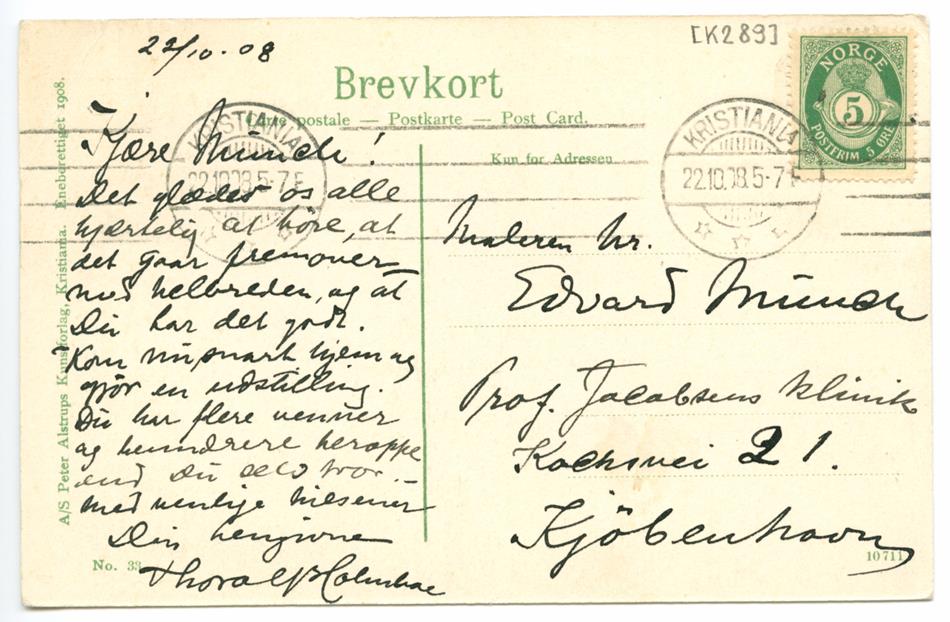 [K289]
22/10·08
NORGE
5
POSTFRIM 5 ØRE
Brevkort
Carte postale — Postkarte — Post Card.
Kun for Adressen
KRISTIANIA
22.10.08.5-7 E
KRISTIANIA
22.10.08.5-7 E
Kjære Münch!
Det glæder os alle
hjærtelig at höre, at
det gaar fremover
med helbreden, og at
Du har det godt.
Kom nu snart hjem og
gjör en udstilling.
Du har flere venner
og beundrere heroppe
end Du selv tror.
med venlige hilsener
Din hengivne
Thorolf Holmboe
Maleren hr.
Edvard Münch
Prof. Jacobsens klinik
Kochsvei 21.
Kjöbenhavn
A/S Peter Alstrups Kunstforlag, Kristiania. Eneberettiget 1908.
No. 33
10711